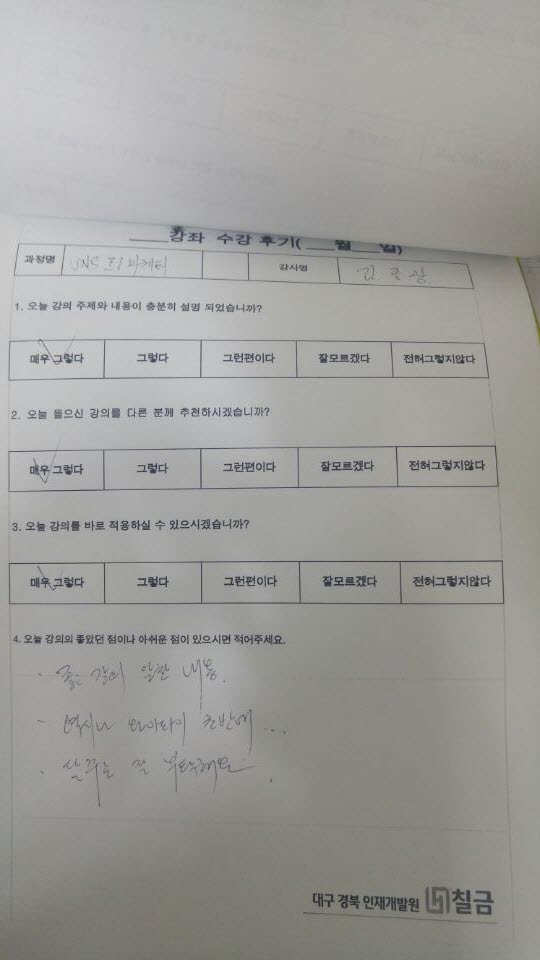 강좌 수강 후기( ___월 ___일)
과정명 SNS 강사명
1. 오늘 강의 주제와 내용이 충분히 설명 되었습니까?
매우 그렇다 그렇다 그런편이다 잘모르겠다 전혀그렇지않다
2. 오늘 들으신 강의를 다른 분께 추천하시겠습니까?
매우 그렇다 그렇다 그런편이다 잘모르겠다 전혀그렇지않다
3. 오늘 강의를 바로 적용하실 수 있으시겠습니까?
매우 그렇다 그렇다 그런편이다 잘모르겠다 전혀그렇지않다
4. 오늘 강의의 좋았던 점이나 아쉬운 점이 있으시면 적어주세요.
- 좋은 강의 알찬 내용.
- 역시나 와이파이 초반에...
- 잘 부탁해요.
대구 경북 인재개발원 칠금